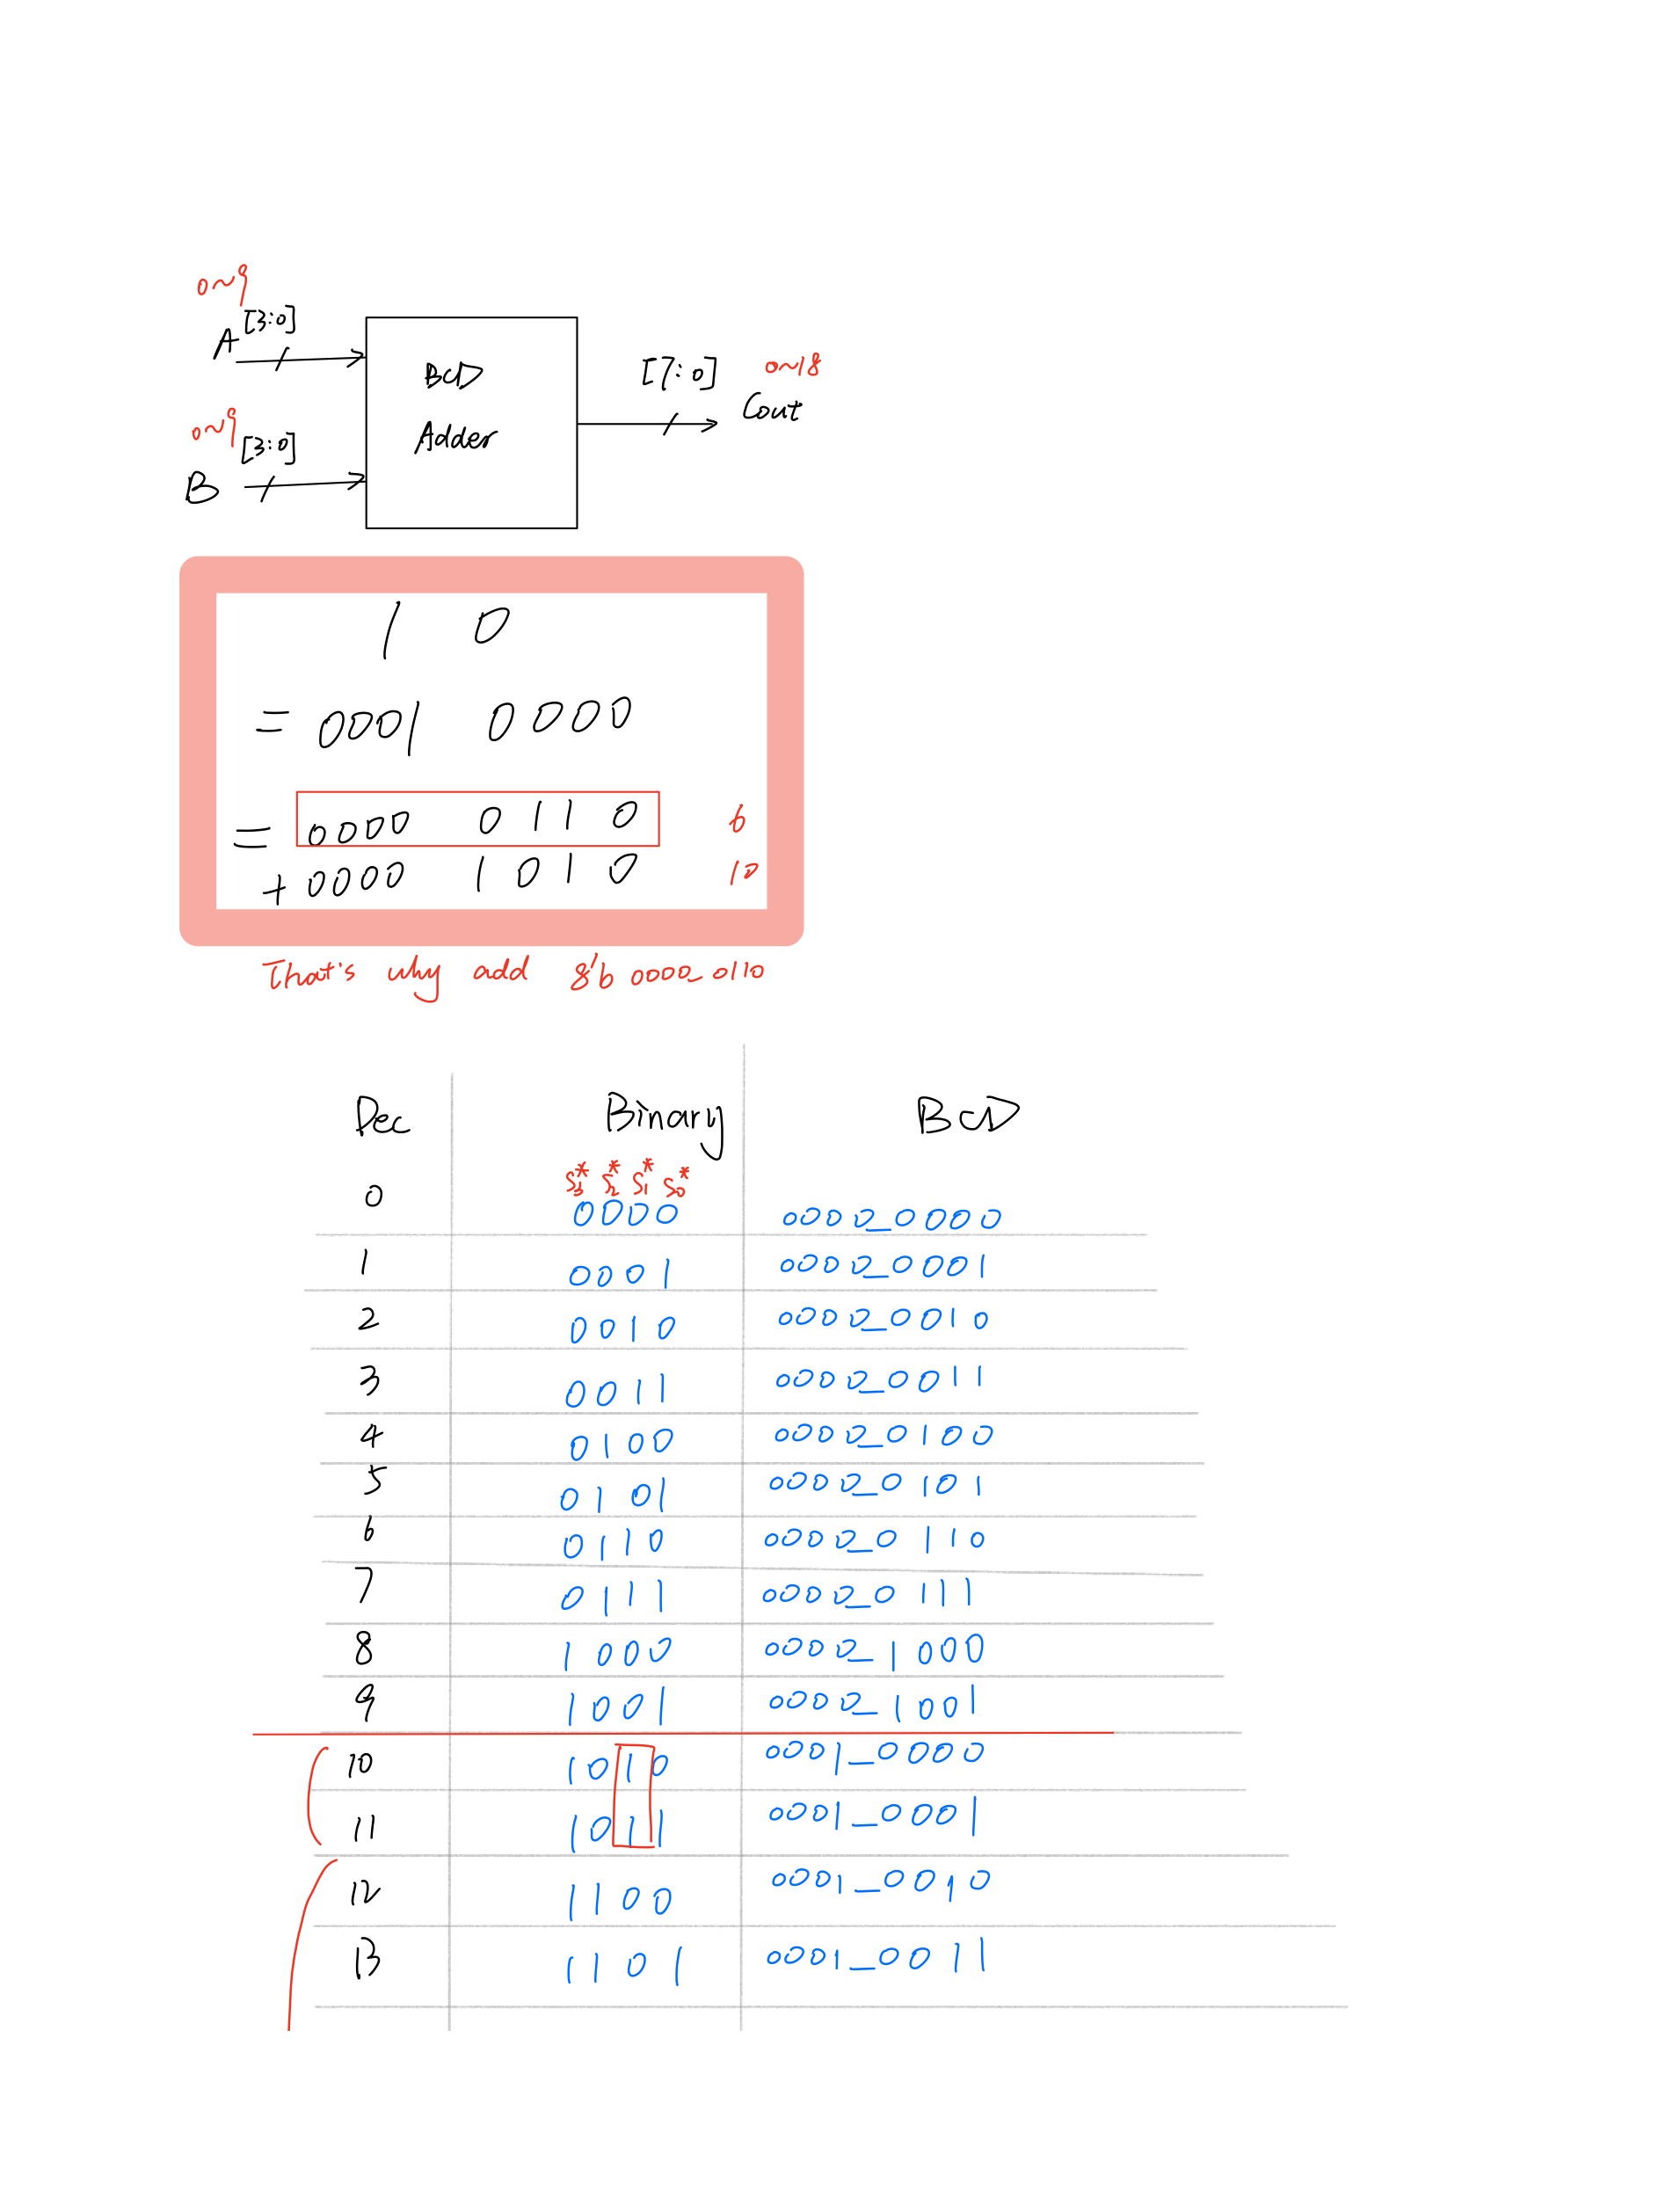 0~9
A [3:0]
BCD
Adder
[7:0] 0~18
Cout
0~9
B [3:0]
1 0
= 0001 0000
= 0000 0110 6
+ 0000 1010 10
That's why add 8'b 0000_0110
Dec Binary BCD
S3* S2* S1* S0*
0 0000 0000_0000
1 0001 0000_0001
2 0010 0000_0010
3 0011 0000_0011
4 0100 0000_0100
5 0101 0000_0101
6 0110 0000_0110
7 0111 0000_0111
8 1000 0000_1000
9 1001 0000_1001
10 1010 0001_0000
11 1011 0001_0001
12 1100 0001_0010
13 1101 0001_0011